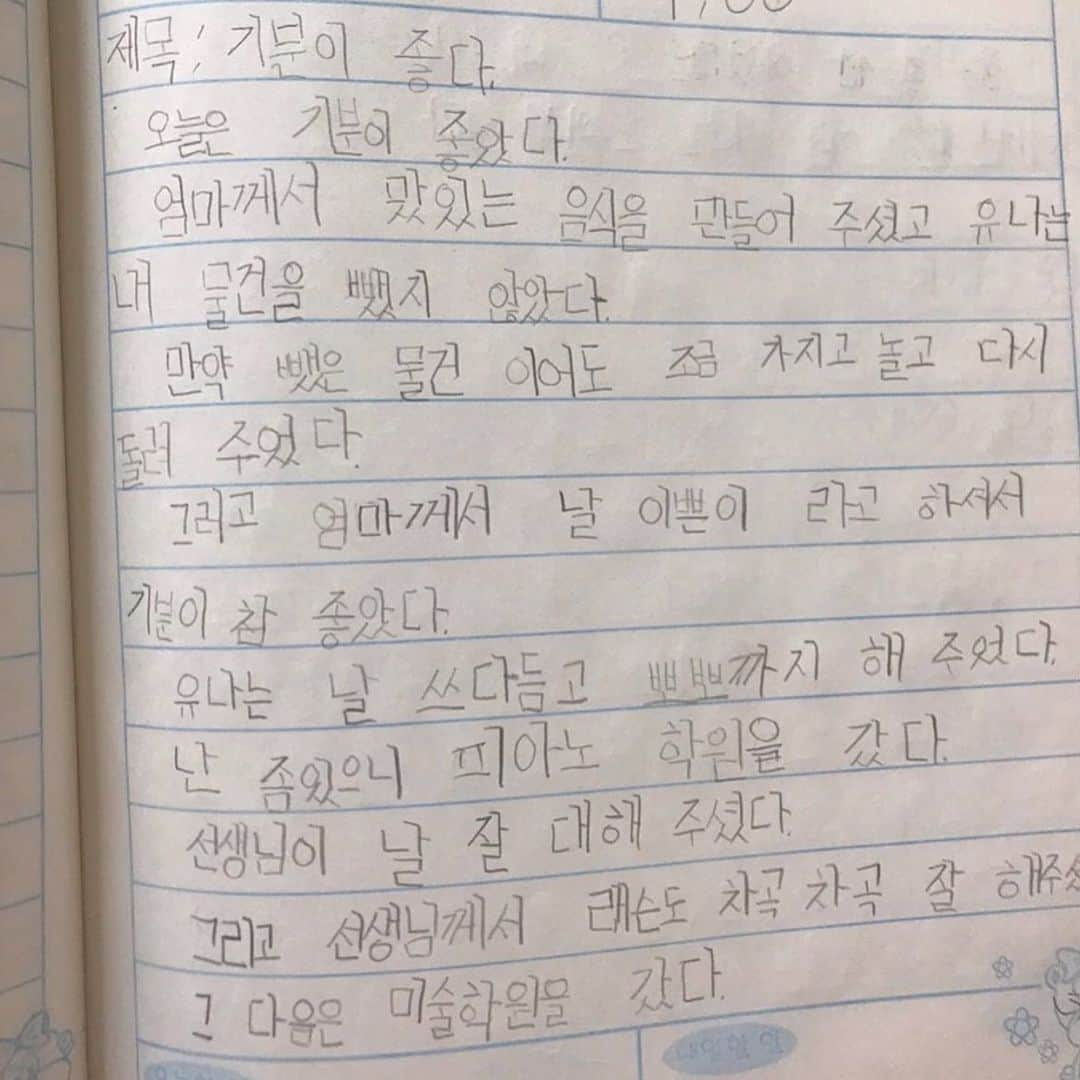 제목! 기분이 좋다.
오늘은 기분이 좋았다.
엄마께서 맜있는 음식을 만들어 주셨고 유나는
내 물건을 뺐지 않았다.
만약 뺐은 물건 이어도 조금 가지고 놀고 다시
돌려 주었다.
그리고 엄마께서 날 이쁜이 라고 하셔서
기분이 참 좋았다.
유나는 날 쓰다듬고 뽀뽀까지 해 주었다.
난 좀있으니 피아노 학원을 갔다.
선생님이 날 잘 대해 주셨다.
그리고 선생님께서 래슨도 차곡 차곡 잘 해주셨
그 다음은 미술학원을 갔다.